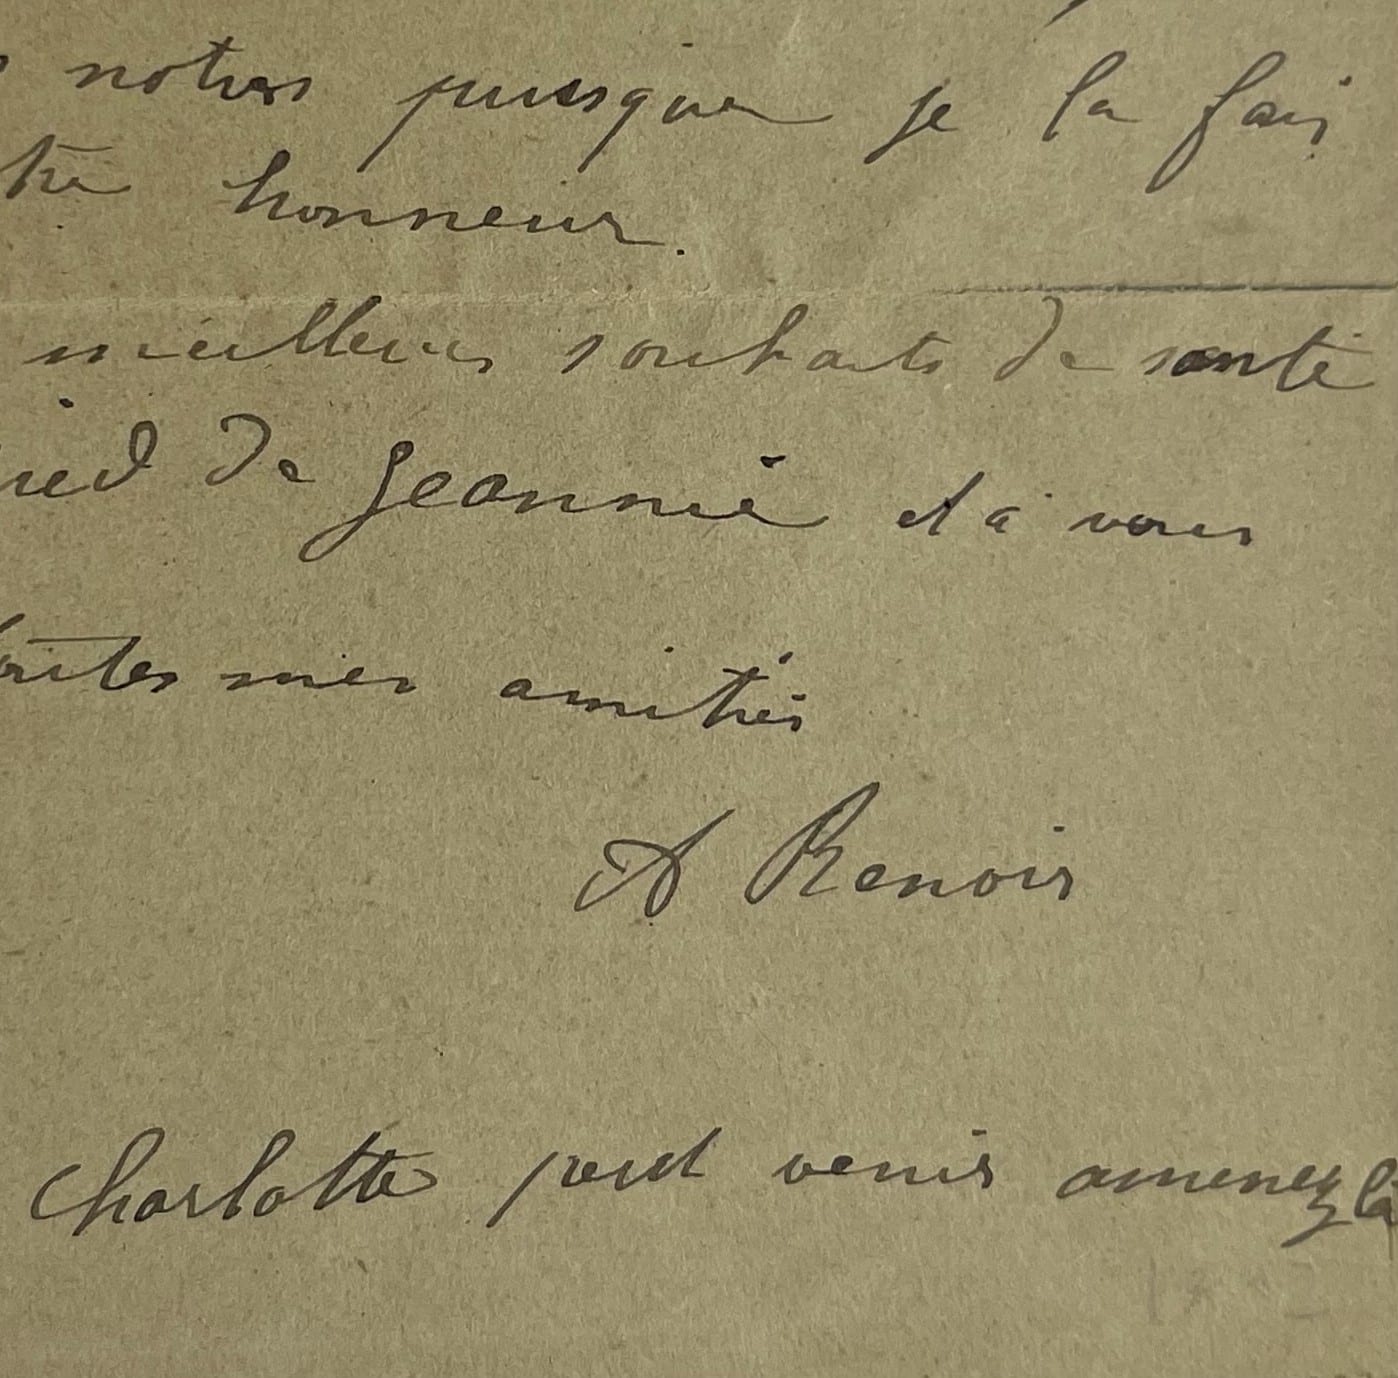 notres puisque je la fais
tre honneur.
meilleurs souhaits de santé
ied de Jeannie et à vous
toutes mes amitiés
A Renoir
Charlotte peut venir amenez la